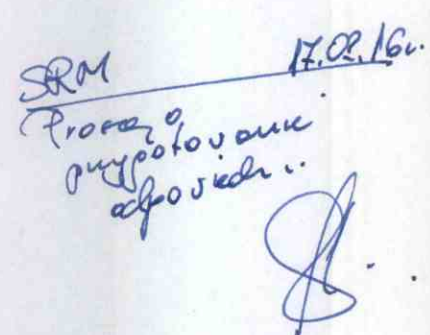 SRM 17.02.16r.
Proszę o
przygotowanie
odpowiedzi..